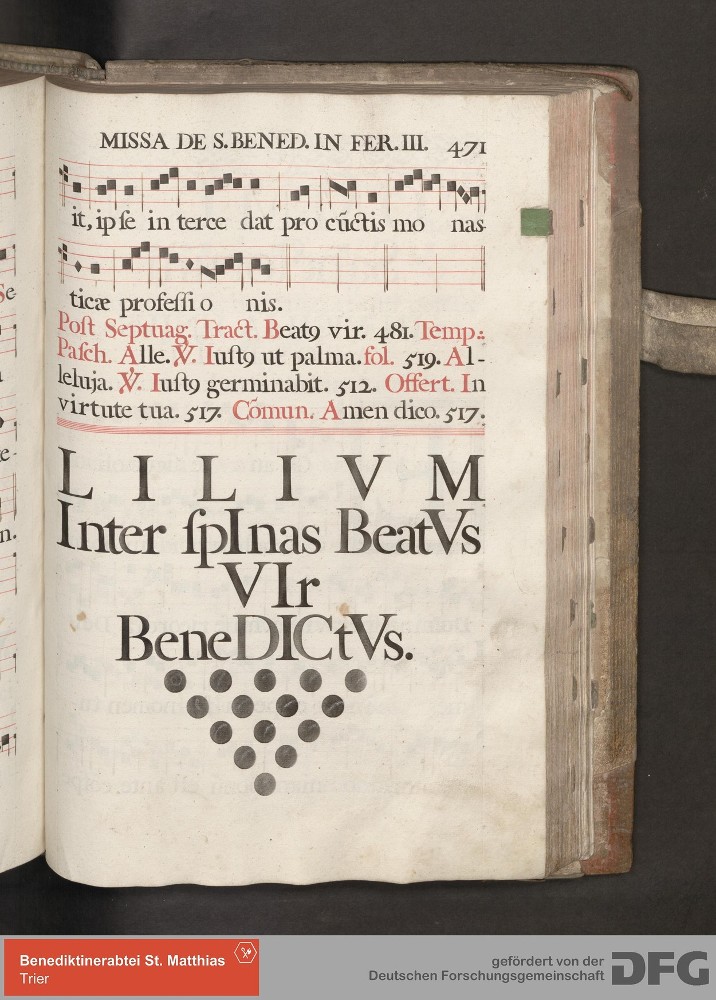 MISSA DE S. BENED. IN FER. III. 471
it, ipſe in terce dat pro cūctis mo nas-
ticæ profeſſi o nis.
Poſt Septuag. Tract. Beatꝯ vir. 481. Temp.:
Paſch. Alle. ℣. Iuſtꝯ ut palma. fol. 519. Al-
leluja. ℣. Iuſtꝯ germinabit. 512. Offert. In
virtute tua. 517. Cōmun. Amen dico. 517.
LILIVM
Inter ſpInas BeatVs
VIr
BeneDICtVs.
Se-
e-
n.
Benediktinerabtei St. Matthias
Trier
gefördert von der
Deutschen Forschungsgemeinschaft
DFG